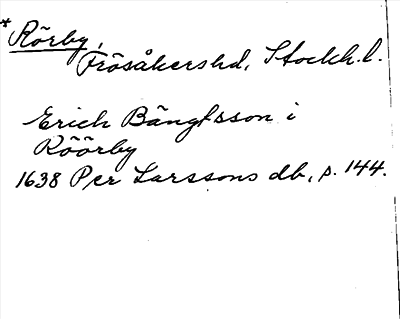 * Rörby,
Frösåkershd, Stockh. l.
Erich Bängtsson i
Röörby
1638 Per Larssons db, s. 144.